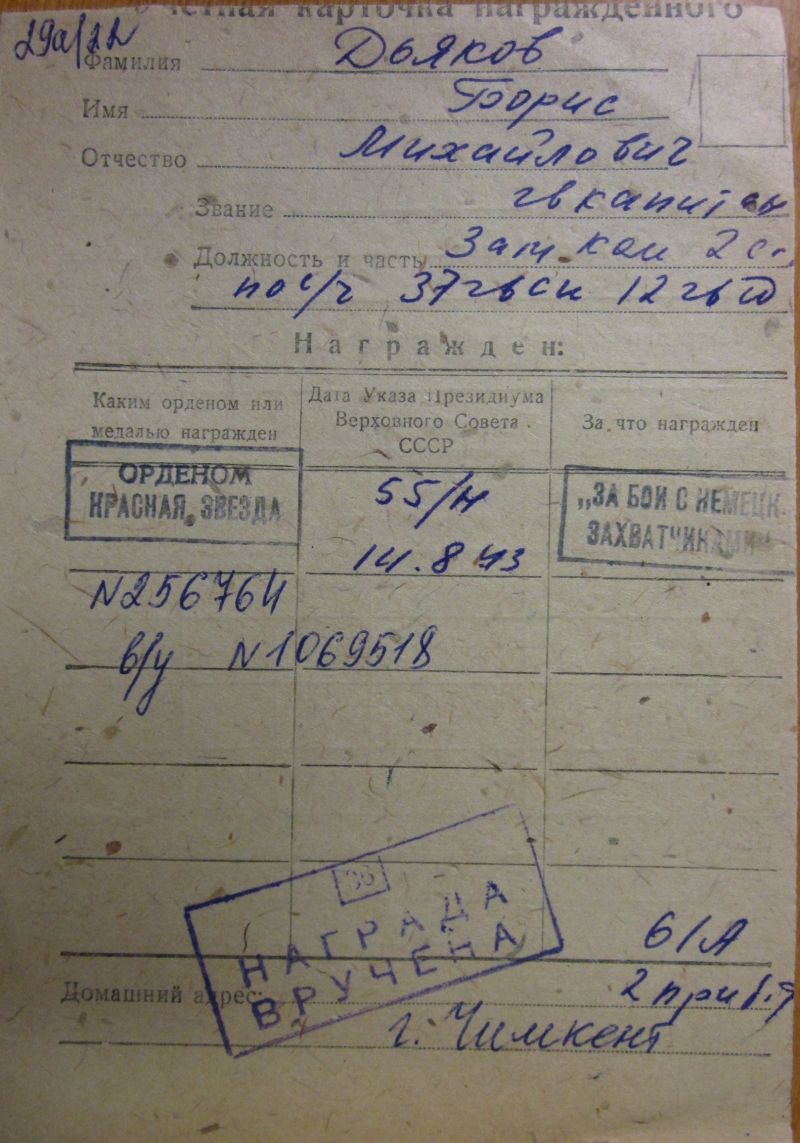 Учетная карточка награжденного
29а/22
Фамилия Дьяков
Имя Борис
Отчество Михайлович
Звание гв капитан
Должность и часть Зам ком 2 с.
по с/ч 37 гвсп 12 гв сд
Награжден:
Каким орденом или медалью награжден
Дата Указа Президиума Верховного Совета СССР
За что награжден
ОРДЕНОМ
КРАСНАЯ ЗВЕЗДА
55/н
„ЗА БОИ С НЕМЕЦК.
ЗАХВАТЧИКАМИ"
14.8 43
N256764
в/у N1069518
НАГРАДА
ВРУЧЕНА
61А
Домашний адрес:
г. Чимкент